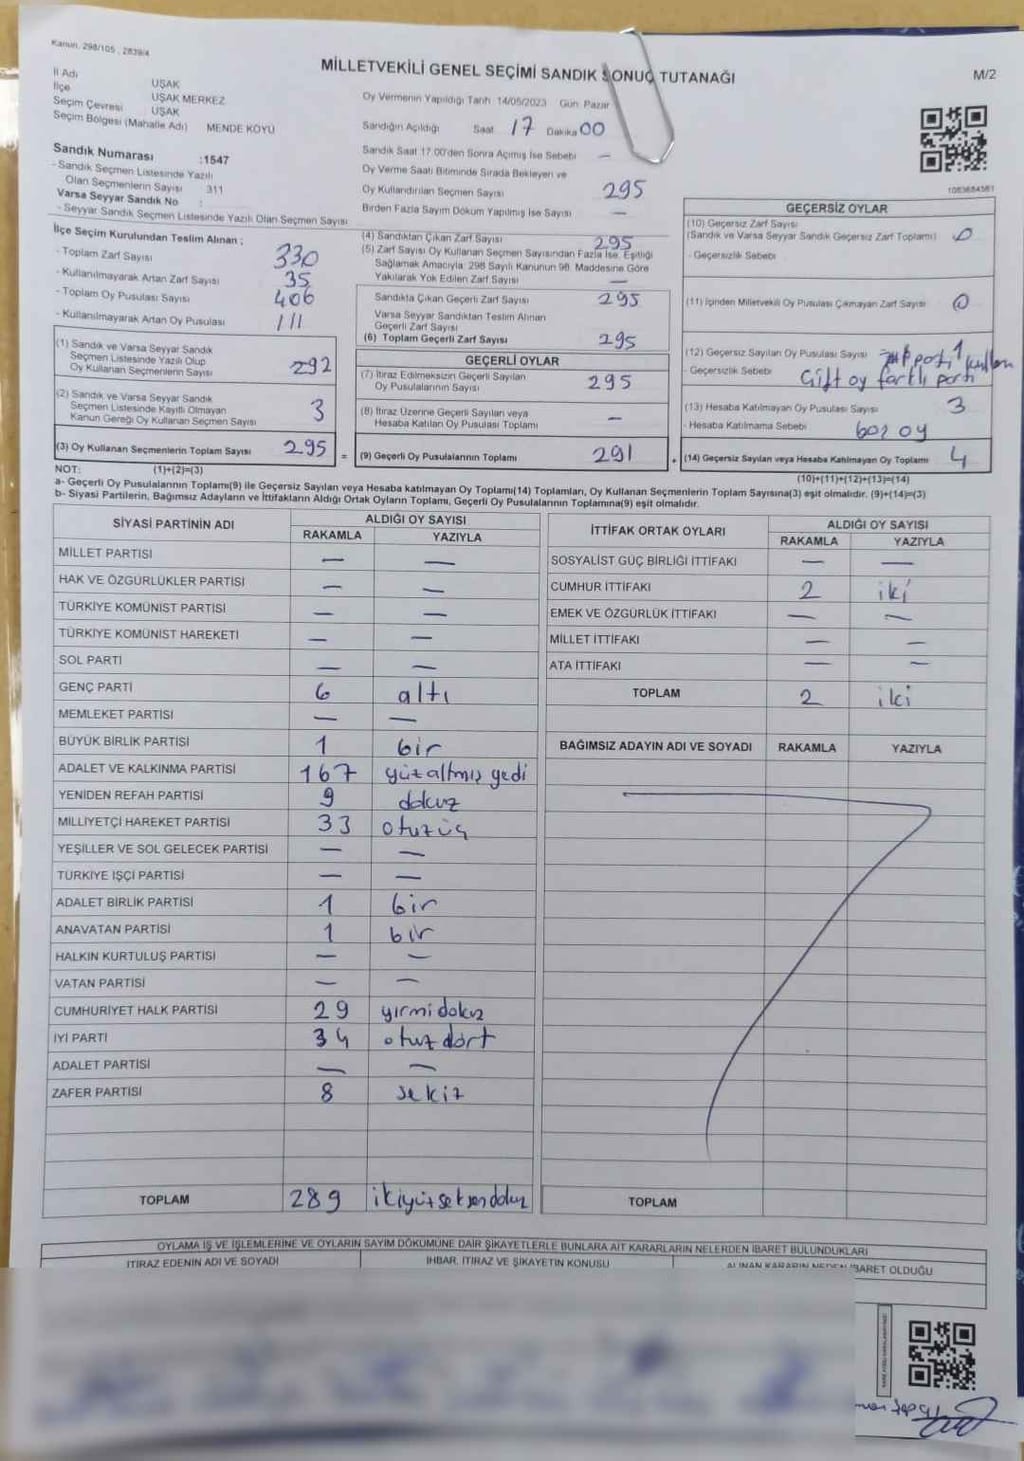 Kanun. 298/105 , 2839/4
MİLLETVEKİLİ GENEL SEÇİMİ SANDIK SONUÇ TUTANAĞI
M/2
İl Adı UŞAK
İlçe UŞAK MERKEZ
Seçim Çevresi UŞAK
Seçim Bölgesi (Mahalle Adı) MENDE KÖYÜ
Sandık Numarası :1547
- Sandık Seçmen Listesinde Yazılı
Olan Seçmenlerin Sayısı 311
Varsa Seyyar Sandık No :
- Seyyar Sandık Seçmen Listesinde Yazılı Olan Seçmen Sayısı
Oy Vermenin Yapıldığı Tarih 14/05/2023 Gün Pazar
Sandığın Açıldığı Saat 17 Dakika 00
Sandık Saat 17.00'den Sonra Açılmış İse Sebebi —
Oy Verme Saati Bitiminde Sırada Bekleyen ve
Oy Kullandırılan Seçmen Sayısı 295
Birden Fazla Sayım Döküm Yapılmış İse Sayısı —
1083684561
İlçe Seçim Kurulundan Teslim Alınan ;
- Toplam Zarf Sayısı 330
- Kullanılmayarak Artan Zarf Sayısı 35
- Toplam Oy Pusulası Sayısı 406
- Kullanılmayarak Artan Oy Pusulası 111
(1) Sandık ve Varsa Seyyar Sandık
Seçmen Listesinde Yazılı Olup
Oy Kullanan Seçmenlerin Sayısı 292
(2) Sandık ve Varsa Seyyar Sandık
Seçmen Listesinde Kayıtlı Olmayan
Kanun Gereği Oy Kullanan Seçmen Sayısı 3
(3) Oy Kullanan Seçmenlerin Toplam Sayısı 295 =
(4) Sandıktan Çıkan Zarf Sayısı 295
(5) Zarf Sayısı Oy Kullanan Seçmen Sayısından Fazla İse, Eşitliği
Sağlamak Amacıyla; 298 Sayılı Kanunun 98. Maddesine Göre
Yakılarak Yok Edilen Zarf Sayısı —
Sandıkta Çıkan Geçerli Zarf Sayısı 295
Varsa Seyyar Sandıktan Teslim Alınan
Geçerli Zarf Sayısı
(6) Toplam Geçerli Zarf Sayısı 295
GEÇERLİ OYLAR
(7) İtiraz Edilmeksizin Geçerli Sayılan
Oy Pusulalarının Sayısı 295
(8) İtiraz Üzerine Geçerli Sayılan veya
Hesaba Katılan Oy Pusulası Toplamı —
(9) Geçerli Oy Pusulalarının Toplamı 291 +
GEÇERSİZ OYLAR
(10) Geçersiz Zarf Sayısı
(Sandık ve Varsa Seyyar Sandık Geçersiz Zarf Toplamı) 0
- Geçersizlik Sebebi
(11) İçinden Milletvekili Oy Pusulası Çıkmayan Zarf Sayısı 0
(12) Geçersiz Sayılan Oy Pusulası Sayısı 1
- Geçersizlik Sebebi Çift oy farklı parti
(13) Hesaba Katılmayan Oy Pusulası Sayısı 3
- Hesaba Katılmama Sebebi boz oy
(14) Geçersiz Sayılan veya Hesaba Katılmayan Oy Toplamı 4
NOT: (1)+(2)=(3) (10)+(11)+(12)+(13)=(14)
a- Geçerli Oy Pusulalarının Toplamı(9) ile Geçersiz Sayılan veya Hesaba katılmayan Oy Toplamı(14) Toplamları, Oy Kullanan Seçmenlerin Toplam Sayısına(3) eşit olmalıdır. (9)+(14)=(3)
b- Siyasi Partilerin, Bağımsız Adayların ve İttifakların Aldığı Ortak Oyların Toplamı, Geçerli Oy Pusulalarının Toplamına(9) eşit olmalıdır.
SİYASİ PARTİNİN ADI ALDIĞI OY SAYISI
RAKAMLA YAZIYLA
MİLLET PARTİSİ — —
HAK VE ÖZGÜRLÜKLER PARTİSİ — —
TÜRKİYE KOMÜNİST PARTİSİ — —
TÜRKİYE KOMÜNİST HAREKETİ — —
SOL PARTİ — —
GENÇ PARTİ 6 altı
MEMLEKET PARTİSİ — —
BÜYÜK BİRLİK PARTİSİ 1 bir
ADALET VE KALKINMA PARTİSİ 167 yüz altmış yedi
YENİDEN REFAH PARTİSİ 9 dokuz
MİLLİYETÇİ HAREKET PARTİSİ 33 otuzüç
YEŞİLLER VE SOL GELECEK PARTİSİ — —
TÜRKİYE İŞÇİ PARTİSİ — —
ADALET BİRLİK PARTİSİ 1 bir
ANAVATAN PARTİSİ 1 bir
HALKIN KURTULUŞ PARTİSİ — —
VATAN PARTİSİ — —
CUMHURİYET HALK PARTİSİ 29 yirmidokuz
İYİ PARTİ 34 otuz dört
ADALET PARTİSİ — —
ZAFER PARTİSİ 8 sekiz
TOPLAM 289 ikiyüzseksendokuz
İTTİFAK ORTAK OYLARI ALDIĞI OY SAYISI
RAKAMLA YAZIYLA
SOSYALİST GÜÇ BİRLİĞİ İTTİFAKI — —
CUMHUR İTTİFAKI 2 iki
EMEK VE ÖZGÜRLÜK İTTİFAKI — —
MİLLET İTTİFAKI — —
ATA İTTİFAKI — —
TOPLAM 2 iki
BAĞIMSIZ ADAYIN ADI VE SOYADI RAKAMLA YAZIYLA
TOPLAM
OYLAMA İŞ VE İŞLEMLERİNE VE OYLARIN SAYIM DÖKÜMÜNE DAİR ŞİKAYETLERLE BUNLARA AİT KARARLARIN NELERDEN İBARET BULUNDUKLARI
İTİRAZ EDENİN ADI VE SOYADI İHBAR, İTİRAZ VE ŞİKAYETİN KONUSU ALINAN KARARIN NEDEN İBARET OLDUĞU